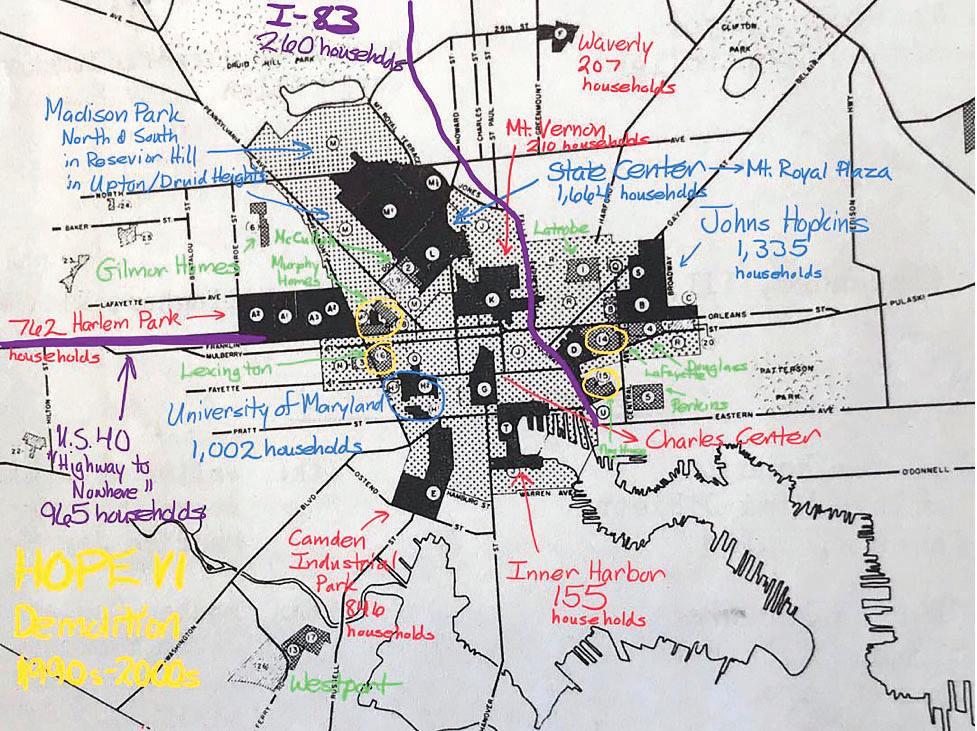 I-83
260 households
29th ST
CLIFTON
PARK
AVE
DRUID HILL PARK
Waverly
207
households
BELAIR
PENNSYLVANIA
MT. ROYAL TERRACE
HOWARD ST
CHARLES ST
ST PAUL
GREENMOUNT
HWY
Madison Park
North & South
in Resevior Hill
in Upton/Druid Heights
Mt. Vernon
210 households
AVE
State Center → Mt. Royal Plaza
1,664 households
NORTH
JONES
GAY
BAKER ST
Johns Hopkins
1,335
households
McCulloh
Latrobe
BROADWAY
Murphy
Homes
Gilmor Homes
LAFAYETTE AVE
762 Harlem Park →
households
ORLEANS ST
PULASKI
FRANKLIN
MULBERRY
Lexington
Douglass
LaFayette
PATTERSON
PARK
FAYETTE
Perkins
University of Maryland
1,002 households
PRATT ST
EASTERN AVE
CENTRAL
HILTON ST
Charles Center
U.S. 40
"Highway to
Nowhere"
965 households
O'DONNELL
OSTEND
HAMBURG ST
WARREN AVE
BLVD
ST
Camden
Industrial
Park
846
households
Inner Harbor
155
households
HOPE VI
Demolition
1990s-2000s
WASHINGTON
Westport
RUSSELL
FERRY
HANOVER